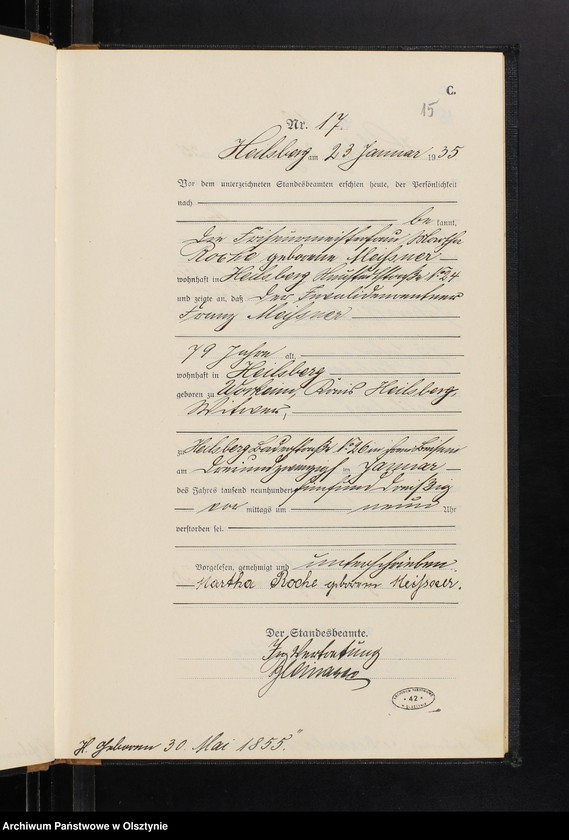 C.
15
Nr. 17.
Heilsberg am 23 Januar 1935
Vor dem unterzeichneten Standesbeamten erschien heute, der Persönlichkeit
nach
be kannt,
die Friseurmeisterfrau Martha
Roche geborene Meissner
wohnhaft in Heilsberg No 24
und zeigte an, daß der Invalidenrentner
Franz Meissner
79 Jahre alt,
wohnhaft in Heilsberg
geboren zu Workeim, Kreis Heilsberg,
Witwer,
zu Heilsberg No 26 in ihrem Beisein
am dreiundzwanzigsten Januar
des Jahres tausend neunhundert fünfunddreißig
vor mittags um neun Uhr
verstorben sei.
Vorgelesen, genehmigt und unterschrieben.
Martha Roche geborene Meissner.
Der Standesbeamte.
In Vertretung
ARCHIWUM PAŃSTWOWE
* 42 *
W OLSZTYNIE
H. Geboren 30. Mai 1855."
Archiwum Państwowe w Olsztynie